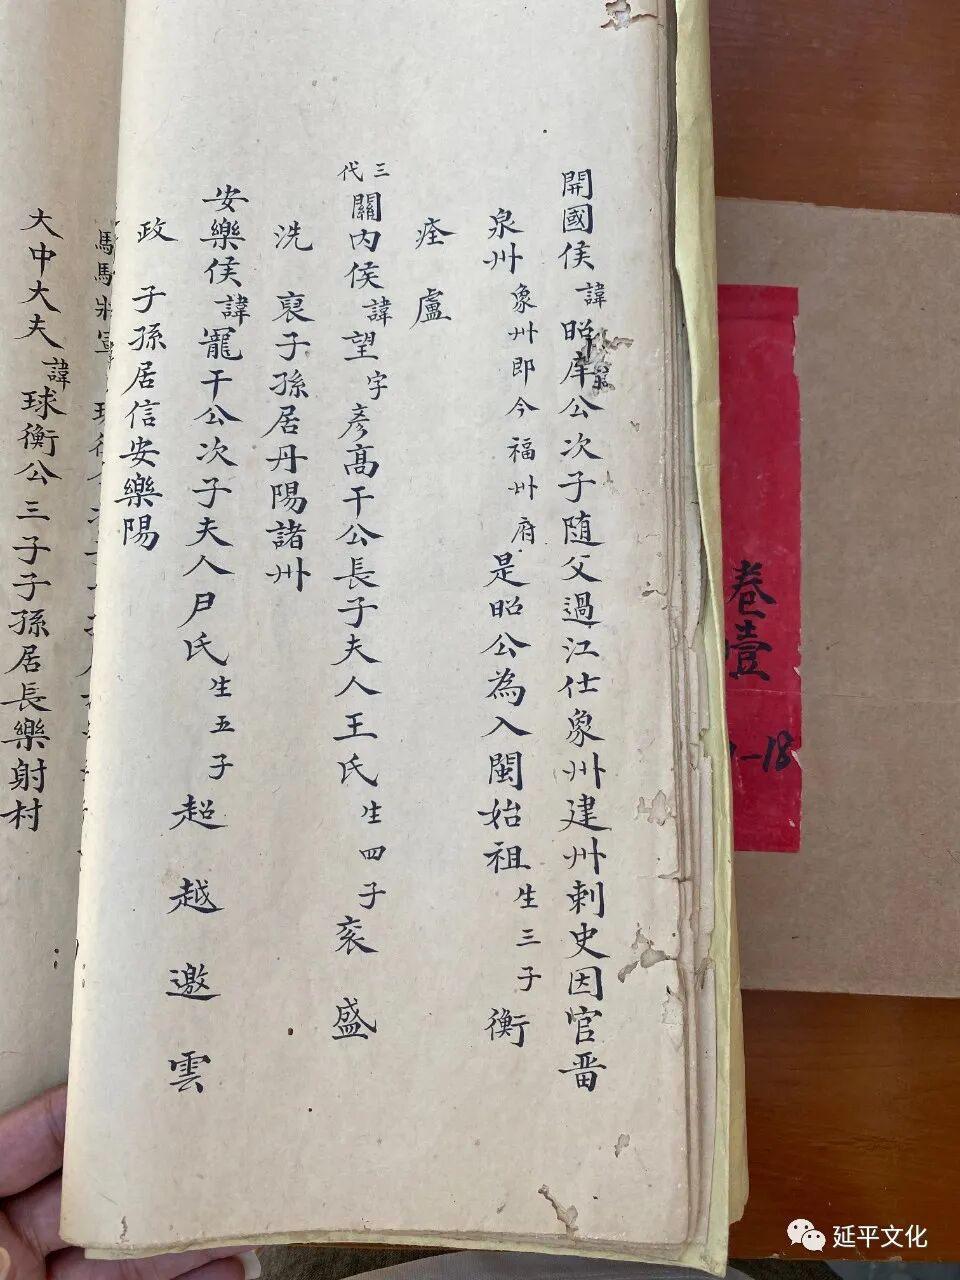 開國侯諱昭庠公次子随父過江仕象州建州刺史因官晋
泉州象州即今福州府是昭公為入閩始祖生三子衡
痊盧
三代關内侯諱望字彥高干公長子夫人王氏生四子衮盛
洗裒子孫居丹陽諸州
安樂侯諱寵干公次子夫人尹氏生五子超越邀雲
政子孫居信安樂陽
大中大夫諱球衡公三子子孫居長樂射村
卷壹
-18
延平文化